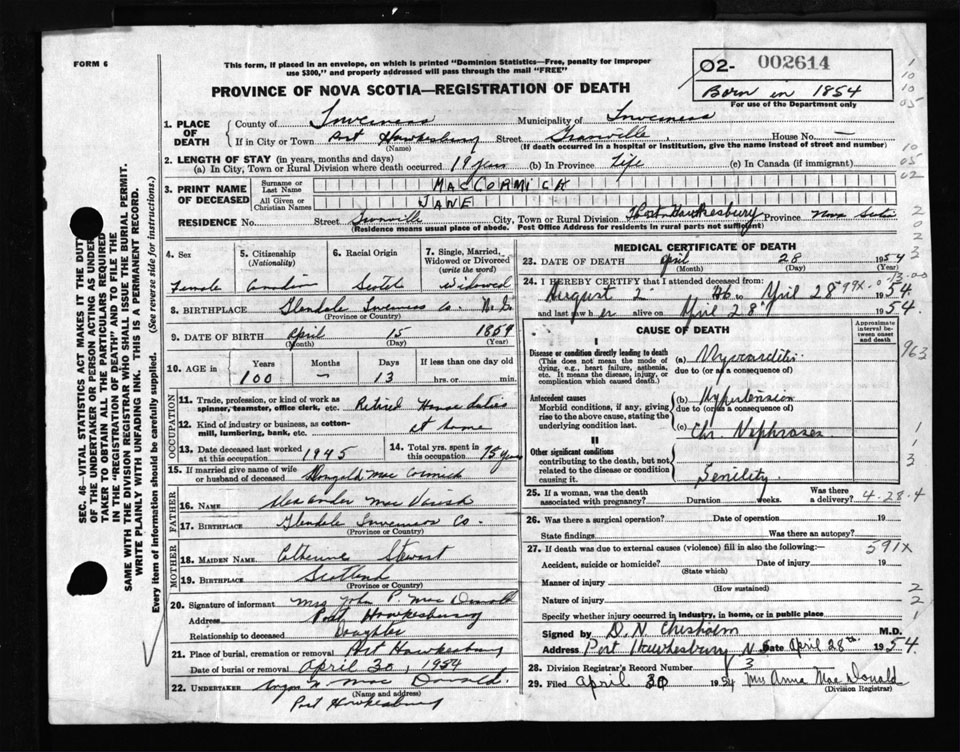 FORM 6
This form, if placed in an envelope, on which is printed "Dominion Statistics—Free, penalty for improper
use $300," and properly addressed will pass through the mail "FREE"
02- 002614
Born in 1854
For use of the Department only
PROVINCE OF NOVA SCOTIA—REGISTRATION OF DEATH
1. PLACE OF DEATH
County of Inverness Municipality of Inverness
If in City or Town Port Hawkesbury Street Granville House No. —
(Name) (If death occurred in a hospital or institution, give the name instead of street and number)
2. LENGTH OF STAY (in years, months and days)
(a) In City, Town or Rural Division where death occurred 19 years (b) In Province Life (c) In Canada (if immigrant)
3. PRINT NAME OF DECEASED
Surname or Last Name MACCORMICK
All Given or Christian Names JANE
RESIDENCE No. Street Granville City, Town or Rural Division Port Hawkesbury Province Nova Scotia
(Residence means usual place of abode. Post Office Address for residents in rural parts not sufficient)
4. Sex 5. Citizenship (Nationality) 6. Racial Origin 7. Single, Married, Widowed or Divorced (write the word)
Female Canadian Scotch Widowed
8. BIRTHPLACE Glendale Inverness Co. N.S.
(Province or Country)
9. DATE OF BIRTH April 15 1859
(Month) (Day) (Year)
10. AGE in Years Months Days If less than one day old
100 — 13 hrs. or min.
OCCUPATION
11. Trade, profession, or kind of work as spinner, teamster, office clerk, etc. Retired House duties
12. Kind of industry or business, as cotton-mill, lumbering, bank, etc. at home
13. Date deceased last worked at this occupation 1945 14. Total yrs. spent in this occupation 75 years
15. If married give name of wife or husband of deceased Mac Cormick
FATHER
16. NAME Alexander Mac
17. BIRTHPLACE Glendale Inverness Co.
(Province or Country)
MOTHER
18. MAIDEN NAME Catherine Stewart
19. BIRTHPLACE Scotland
(Province or Country)
20. Signature of informant Mrs John P. Mac Donald
Address Port Hawkesbury
Relationship to deceased Daughter
21. Place of burial, cremation or removal Port Hawkesbury
Date of burial or removal April 30, 1954
22. UNDERTAKER N. Mac Donald.
(Name and address)
Port Hawkesbury
MEDICAL CERTIFICATE OF DEATH
23. DATE OF DEATH April 28 1954
(Month) (Day) (Year)
24. I HEREBY CERTIFY that I attended deceased from:
August 2 to April 28 1954
and last saw her alive on April 28 1954.
CAUSE OF DEATH
Approximate interval between onset and death
I
Disease or condition directly leading to death
(This does not mean the mode of dying, e.g., heart failure, asthenia, etc. It means the disease, injury, or complication which caused death)
(a) Myocarditis
due to (or as a consequence of)
Antecedent causes
Morbid conditions, if any, giving rise to the above cause, stating the underlying condition last.
(b) Hypertension
due to (or as a consequence of)
(c) Chr. Nephroses
II
Other significant conditions
contributing to the death, but not related to the disease or condition causing it.
Senility
25. If a woman, was the death associated with pregnancy? Duration weeks. Was there a delivery? 4-28-4
26. Was there a surgical operation? Date of operation 19
State findings Was there an autopsy?
27. If death was due to external causes (violence) fill in also the following:— 591x
Accident, suicide or homicide? Date of injury 19
(State which)
Manner of injury
(How sustained)
Nature of injury
Specify whether injury occurred in industry, in home, or in public place
Signed by D. N. Chisholm M.D.
Address Port Hawkesbury N.S. Date April 28th 1954
28. Division Registrar's Record Number 3
29. Filed April 30 1954 Mrs Anna Mac Donald
(Division Registrar)
SEC. 46—VITAL STATISTICS ACT MAKES IT THE DUTY
OF THE UNDERTAKER OR PERSON ACTING AS UNDER-
TAKER TO OBTAIN ALL THE PARTICULARS REQUIRED
IN THE "REGISTRATION OF DEATH" AND TO FILE THE
SAME WITH THE DIVISION REGISTRAR WHO SHALL ISSUE THE BURIAL PERMIT.
WRITE PLAINLY WITH UNFADING INK. THIS IS A PERMANENT RECORD.
Every item of information should be carefully supplied. (See reverse side for instructions.)
1
10
10
05
10
05
02
2
0
2
3
963
1
1
3
2
2
1